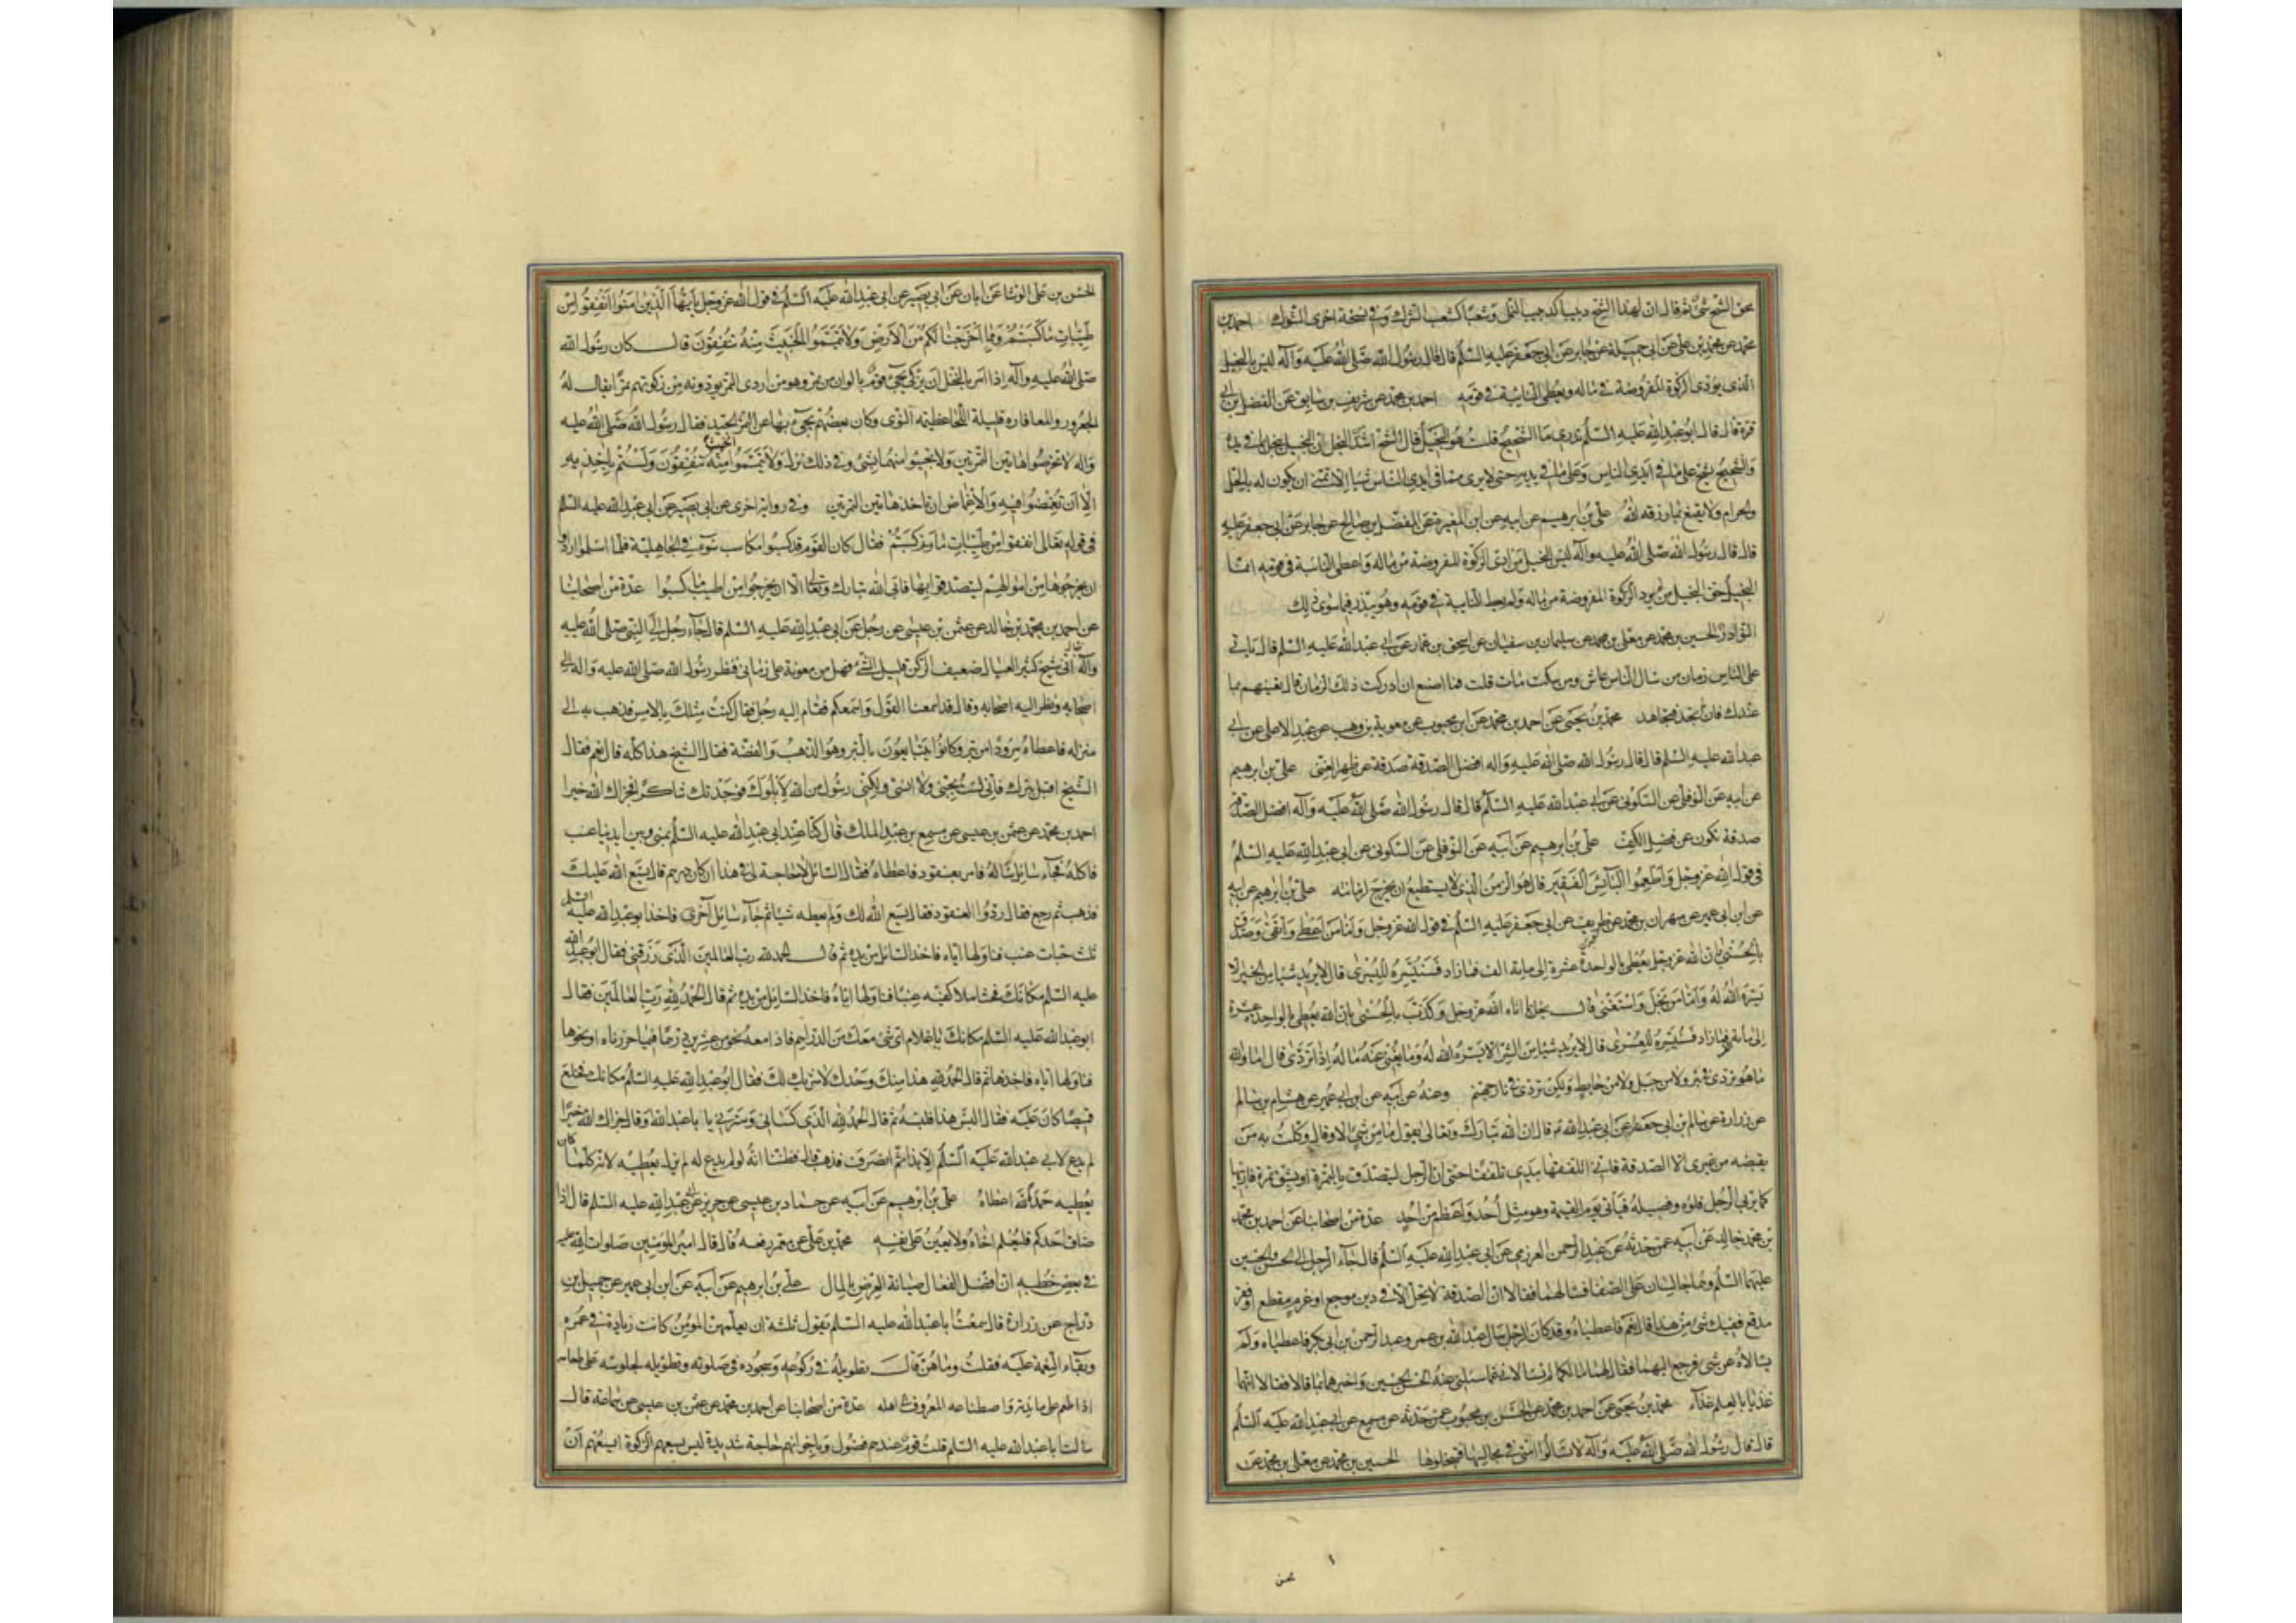 يمحق الشح شئ ثم قال ان لهذا الشح دبيبا كدبيب النمل وشعبا كشعب الشرك وفي نسخة اخرى الشوك احمد بن
محمد عن محمد بن علي عن ابي جميلة عن جابر عن ابي جعفر عليه السلم قال قال رسول الله صلى الله عليه وآله ليس بالبخيل
الذي يؤدي الزكوة المفروضة في ماله ويعطي النائبة في قومه احمد بن محمد عن شريف بن سابق عن الفضل بن ابي
قرة قال قال ابو عبد الله عليه السلم تدري ما الشحيح قلت هو البخيل قال الشح اشد البخل ان البخيل يبخل بما في يده
والشحيح يشح على ما في ايدي الناس وعلى ما في يديه حتى لا يرى مما في ايدي الناس شيئا الا تمنى ان يكون له بالحل
والحرام ولا يقنع بما رزقه الله علي بن ابرهيم عن ابيه عن ابن المغيرة عن المفضل بن صالح عن جابر عن ابي جعفر عليه
قال قال رسول الله صلى الله عليه وآله ليس البخيل من ادى الزكوة المفروضة من ماله واعطى النائبة في قومه انما
البخيل حق البخيل من لم يود الزكوة المفروضة من ماله ولم يعط النائبة في قومه وهو يبذر فيما سوى ذلك
النوادر الحسين بن محمد عن معلى بن محمد عن سليمان بن سفيان عن اسحق بن عمار عن ابي عبد الله عليه السلم قال ياتي
على الناس زمان من سال الناس عاش ومن سكت مات قلت فما اصنع ان ادركت ذلك الزمان قال تعينهم بما
عندك فان لم تجد فتجاهد محمد بن يحيى عن احمد بن محمد عن ابن محبوب عن معوية بن وهب عن عبد الاعلى عن ابي
عبد الله عليه السلم قال قال رسول الله صلى الله عليه وآله افضل الصدقة صدقة عن ظهر الغنى علي بن ابرهيم
عن ابيه عن النوفلي عن السكوني عن ابي عبد الله عليه السلم قال قال رسول الله صلى الله عليه وآله افضل الصدقة
صدقة تكون عن فضل الكف علي بن ابرهيم عن ابيه عن النوفلي عن السكوني عن ابي عبد الله عليه السلم
في قول الله عز وجل واطعموا البآئس الفقير قال هو الزمن الذي لا يستطيع ان يخرج لزمانته علي بن ابرهيم عن ابيه
عن ابن ابي عمير عن مهران بن محمد عن سعد بن طريف عن ابي جعفر عليه السلم في قول الله عز وجل واما من اعطى واتقى وصدق
بالحسنى بان الله عز وجل يعطي بالواحدة عشرة الى ماية الف فما زاد فسنيسره لليسرى قال لا يريد شيئا من الخير الا
يسره الله له واما من بخل واستغنى قال بخل بما اتاه الله عز وجل وكذب بالحسنى بان الله يعطي بالواحد عشرة
الى مائة الف فما زاد فسنيسره للعسرى قال لا يريد شيئا من الشر الا يسره الله له وما يغني عنه ماله اذا تردى قال اما والله
ما هو تردى في بئر ولا من جبل ولا من حايط ولكن تردى في نار جهنم وعنه عن ابيه عن ابن ابي عمير عن هشام بن سالم
عن زرارة عن سالم بن ابي جعفر عن ابي عبد الله قال ان الله تبارك وتعالى يقول ما من شئ الا وقد وكلت به من
يقبضه من غيري الا الصدقة فاني اتلقفها بيدي تلقفا حتى ان الرجل ليتصدق بالتمرة او بشق تمرة فاربيها
كما يربي الرجل فلوه وفصيله فيأتي يوم القيمة وهو مثل احد واعظم من احد عدة من اصحابنا عن احمد بن محمد
بن محمد خالد عن ابيه عمن حدثه عن عبد الرحمن العرزمي عن ابي عبد الله عليه السلم قال جآء الرجل الى الحسن والحسين
عليهما السلم وهما جالسان على الصفا فسالهما فقالا ان الصدقة لا تحل الا في دين موجع او غرم مفظع او فقر
مدقع ففيك شئ من هذا قال نعم فاعطياه وقد كان الرجل سال عبد الله بن عمر وعبد الرحمن بن ابي بكر فاعطياه ولم
يسالاه عن شئ فرجع اليهما فقال لهما ما لكما لم تسالاني عما سئلني عنه الحسن والحسين واخبرهما بما قالا فقالا انهما
غذيا بالعلم غذآء محمد بن يحيى عن احمد بن محمد عن الحسن بن محبوب عمن حدثه عن مسمع عن ابي عبد الله عليه السلم
قال قال رسول الله صلى الله عليه وآله لا تسالوا امتي في مجالسها فتبخلوها الحسين بن محمد عن معلى بن محمد عن
الحسن بن علي الوشا عن ابان عن ابي بصير عن ابي عبد الله عليه السلم في قول الله عز وجل يا ايها الذين امنوا انفقوا من
طيبات ما كسبتم ومما اخرجنا لكم من الارض ولا تيمموا الخبيث منه تنفقون قال كان رسول الله
صلى الله عليه وآله اذا امر بالنخل ان يزكى يجئ قوم بالوان من تمر وهو من اردى التمر يودونه من زكوتهم تمرا يقال له
الجعرور والمعافاره قليلة اللحا عظيمة النوى وكان بعضهم يجئ بها عن التمر الجيد فقال رسول الله صلى الله عليه
وآله لا تخرصوا هاتين التمرتين ولا تجيئوا منهما بشئ وفي ذلك نزل ولا تيمموا الخبيث منه تنفقون ولستم باخذيه
الا ان تغمضوا فيه والاغماض ان تاخذ هاتين التمرتين وفي رواية اخرى عن ابي بصير عن ابي عبد الله عليه السلم
في قوله تعالى انفقوا من طيبات ما كسبتم فقال كان القوم قد كسبوا مكاسب سوء في الجاهلية فلما اسلموا ارادوا
ان يخرجوها من اموالهم ليتصدقوا بها فابى الله تبارك وتعالى الا ان يخرجوا من اطيب ما كسبوا عدة من اصحابنا
عن احمد بن محمد بن خالد عن عثمن بن عيسى عن رجل عن ابي عبد الله عليه السلم قال جآء رجل الى النبي صلى الله عليه
وآله فقال اني شيخ كثير العيال ضعيف الركن قليل الشئ فهل من معونة على زماني فنظر رسول الله صلى الله عليه وآله الى
اصحابه ونظر اليه اصحابه وقال قد اسمعنا القول واسمعكم فقام اليه رجل فقال كنت مثلك بالامس فذهب به الى
منزله فاعطاه مرودا من تبر وكانوا يتبايعون بالتبر وهو الذهب والفضة فقال الشيخ هذا كله قال نعم فقال
الشيخ اقبل تبرك فاني لست بجني ولا انسي ولكني رسول من الله لابلوك فوجدتك شاكرا فجزاك الله خيرا
احمد بن محمد عن عثمن بن عيسى عن مسمع بن عبد الملك قال كنا عند ابي عبد الله عليه السلم بمنى وبين ايدينا عنب
فاكله فجآء سائل فساله فامر بعنقود فاعطاه فقال السائل لا حاجة لي في هذا ان كان درهم قال يسع الله عليك
فذهب ثم رجع فقال ردوا العنقود فقال يسع الله لك ولم يعطه شيئا ثم جآء سائل آخر فاخذ ابو عبد الله عليه السلم
ثلث حبات عنب فناولها اياه فاخذ السائل من يده ثم قال الحمد لله رب العالمين الذي رزقني فقال ابو عبد الله
عليه السلم مكانك فحثا ملا كفيه عنبا فناولها اياه فاخذ السائل من يده ثم قال الحمد لله رب العالمين فقال
ابو عبد الله عليه السلم مكانك يا غلام اي شئ معك من الدراهم فاذا معه نحو من عشرين درهما فيما حزرناه او نحوها
فناولها اياه فاخذها ثم قال الحمد لله هذا منك وحدك لا شريك لك فقال ابو عبد الله عليه السلم مكانك فخلع
قميصا كان عليه فقال البس هذا فلبسه ثم قال الحمد لله الذي كساني وسترني يا ابا عبد الله وقال جزاك الله خيرا
لم يدع لابي عبد الله عليه السلم الا بذا ثم انصرف فذهب قال فظننا انه لو لم يدع له لم يزل يعطيه لانه كلما كان
يعطيه حمد الله اعطاه علي بن ابرهيم عن ابيه عن حماد بن عيسى عن حريز عن ابي عبد الله عليه السلم قال اذا
ضاق احدكم فليعلم اخاه ولا يعين على نفسه محمد بن علي عن معمر رفعه قال قال امير المؤمنين صلوات الله عليه
في بعض خطبه ان افضل الفعال صيانة العرض بالمال علي بن ابرهيم عن ابيه عن ابن ابي عمير عن جميل بن
دراج عن زرارة قال سمعت ابا عبد الله عليه السلم يقول ثلثة ان يعلمهن المؤمن كانت زيادة في عمره
وبقآء النعمة عليه فقلت وما هن قال تطويله في ركوعه وسجوده في صلوته وتطويله لجلوسه على طعامه
اذا طعم على مائدته واصطناعه المعروف الى اهله عدة من اصحابنا عن احمد بن محمد عن عثمن بن عيسى عن سماعة قال
سالت ابا عبد الله عليه السلم قلت قوم عندهم فضول وباخوانهم حاجة شديدة ليس يسعهم الزكوة ايسعهم ان